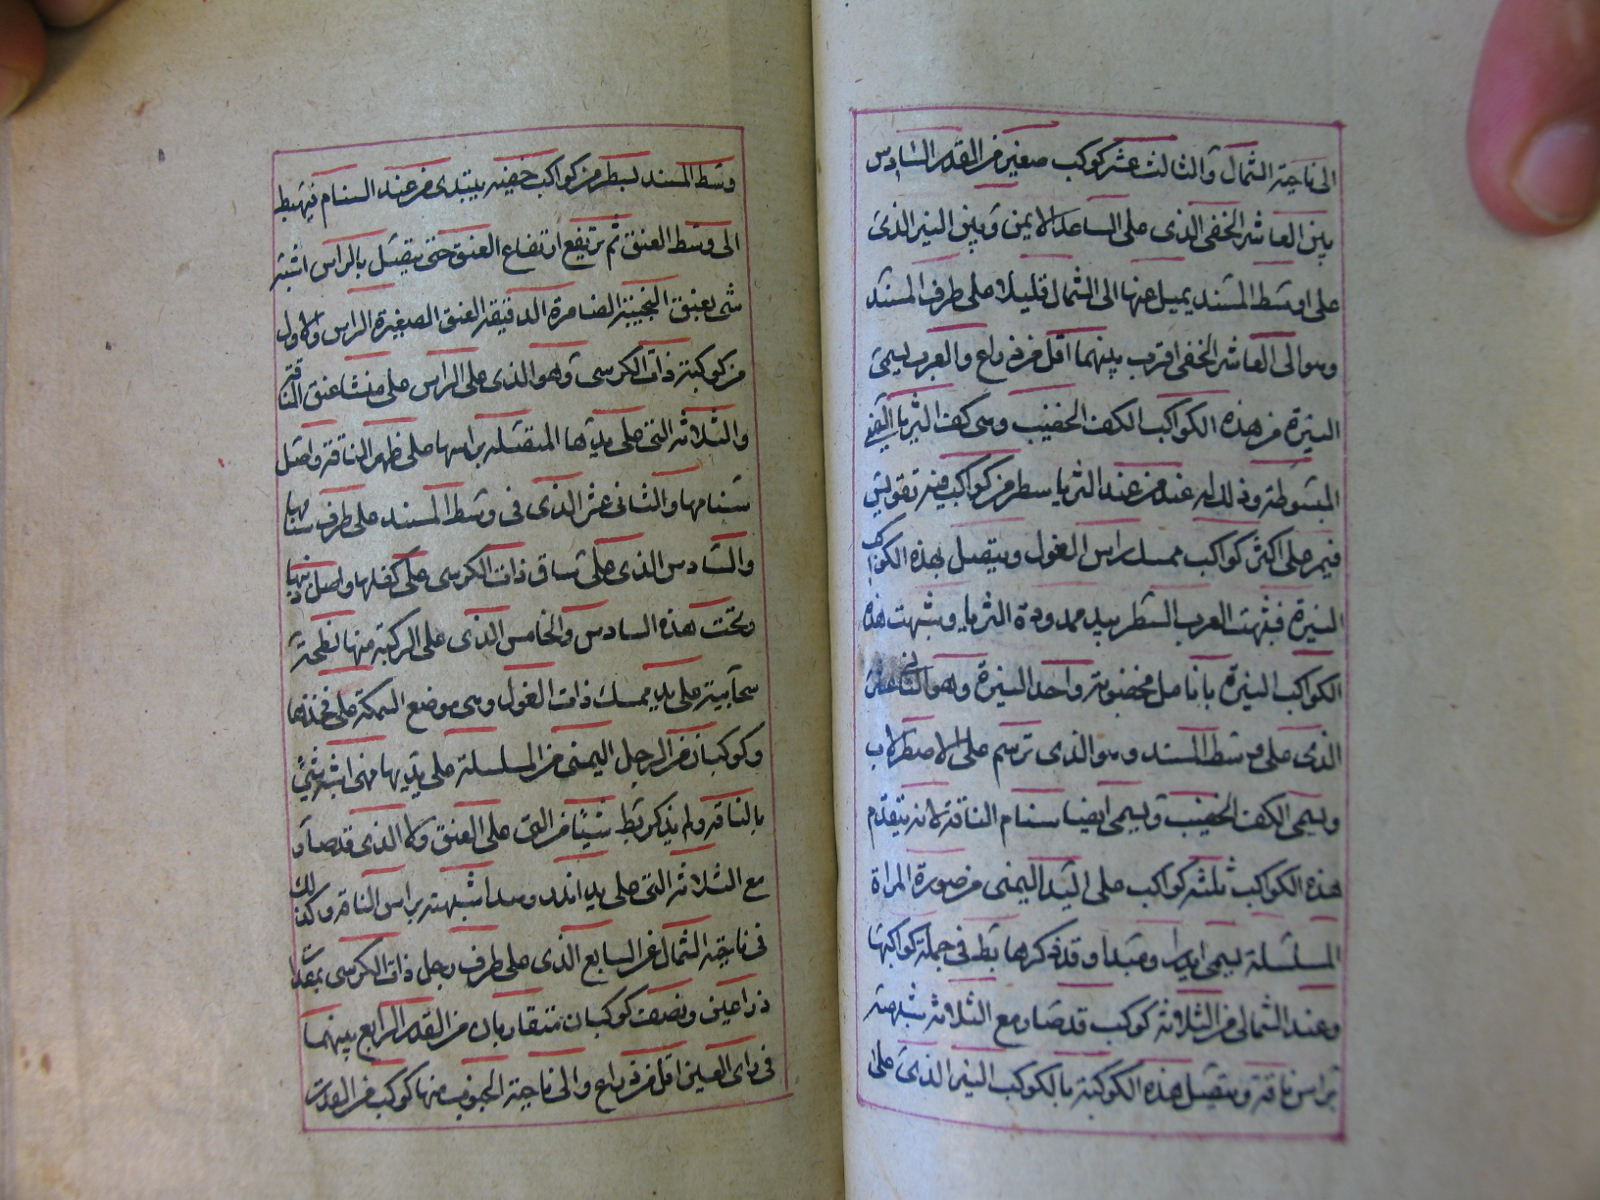 الى ناحية الشمال والثالث عشر كوكب صغير من القدر السادس
بين العاشر الخفى الذى على الساعد الايمن وبين النير الذى
على اوسط المسند يميل عنها الى الشمال قليلا على طرف المسند
وهو الى العاشر الخفى اقرب بينهما اقل من ذراع والعرب يسمى
النيرة من هذه الكواكب الكف الخضيب وهى كف الثريا اليمنى
المبسوطة وذلك انه عندهم عند الثريا سطر من كواكب فيه تقويس
فيمر على اكثر كواكب ممسك راس الغول ويتصل بهذه الكواكب
النيرة فشبهت العرب السطر بيد ممدودة الثريا وشبهت هذه
الكواكب النيرة بانامل مخضوبة واحد النيرة وهو الثانى عشر
الذى على وسط المسند وهو الذى ترسم على الاصطرلاب
ويسمى الكف الخضيب ويسمى ايضا سنام الناقة لانه يتقدم
هذه الكواكب ثلثة كواكب على اليد اليمنى من صورة المراة
المسلسلة يسمى ايدرا ومبدا وقد ذكرها بط فى جملة كواكبها
وعند الشمالى من الثلاثة كوكب قد صار مع الثلاثة شبهته
براس ناقة ويتصل هذه الكوكبة بالكوكب النير الذى على
وسط المسند بسطر من كواكب خفيه يبتدى من عند السنام فيهبط
الى وسط العنق ثم يرتفع ارتفاع العنق حتى يتصل بالراس اشبه
شى بعنق النجيبة الضامرة الدقيقة العنق الصغيرة الراس والاول
من كوكبة ذات الكرسى وهو الذى على الراس على منشا عنق الناقة
والثلاثة التى على يديها المتصله براسها على ظهر الناقة واصل
سنامها والثانى عشر الذى فى وسط المسند على طرف سنامها
والسادس الذى على ساق ذات الكرسى على كفلها واصل ذنبها
وتحت هذه السادس والخامس الذى على الركبة منها لطخة
سحابية على يد ممسك ذات الغول وهى موضع السمكة على فخذها
وكوكبان من الرجل اليمنى من المسلسلة على يديها فهى اشبه شىء
بالناقة ولم يذكر بط شيئا من التى على العنق ولا الذى قد صار
مع الثلاثة التى على يد اندروميدا اشبهته براس الناقة وكذلك
فى ناحية الشمال عن السابع الذى على طرف رجل ذات الكرسى بمقدار
ذراعين ونصف كوكبان متقاربان من القدر الرابع بينهما
فى راى العين اقل من ذراع والى ناحية الجنوب منها كوكب من القدر